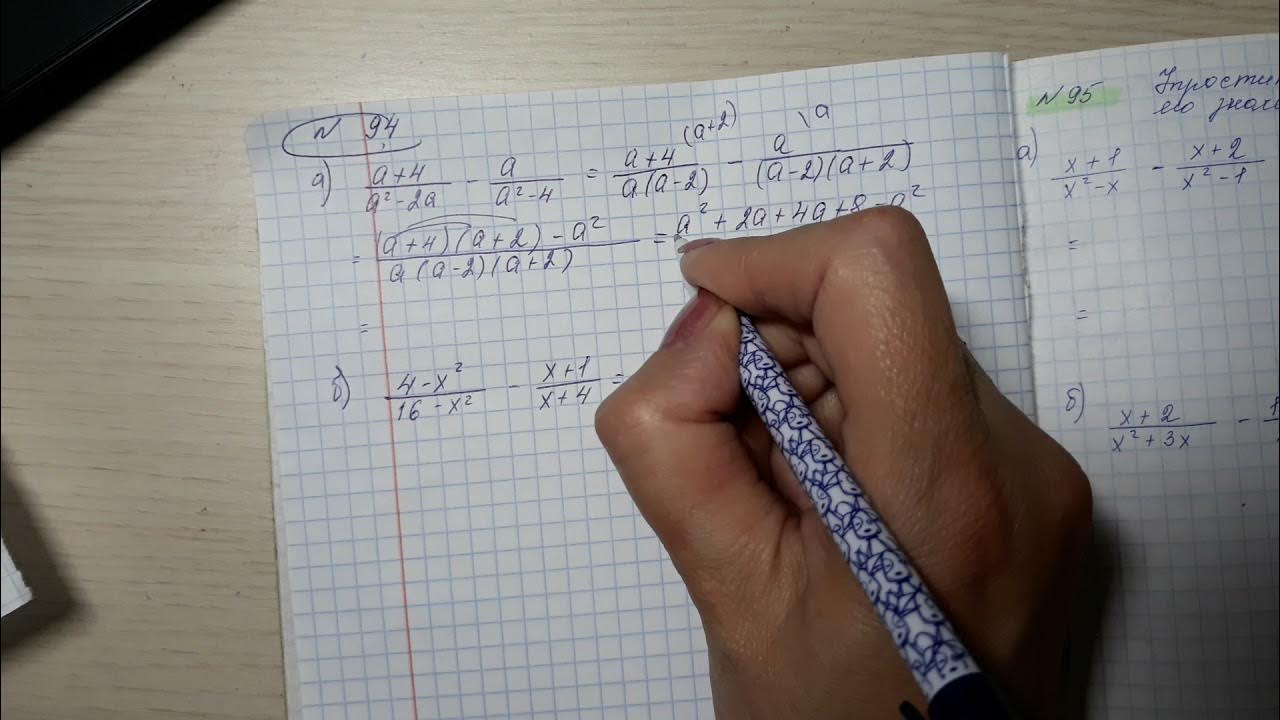 N 94
а) (a+4)/(a²-2a) - a/(a²-4) = (a+4)/(a(a-2)) (a+2) - a/((a-2)(a+2)) \a
= ((a+4)(a+2)-a²)/(a(a-2)(a+2)) = a²+2a+4a+8-a²
=
б) (4-x²)/(16-x²) - (x+1)/(x+4) =
N 95
а) (x+1)/(x²-x) - (x+2)/(x²-1)
=
=
б) (x+2)/(x²+3x) -